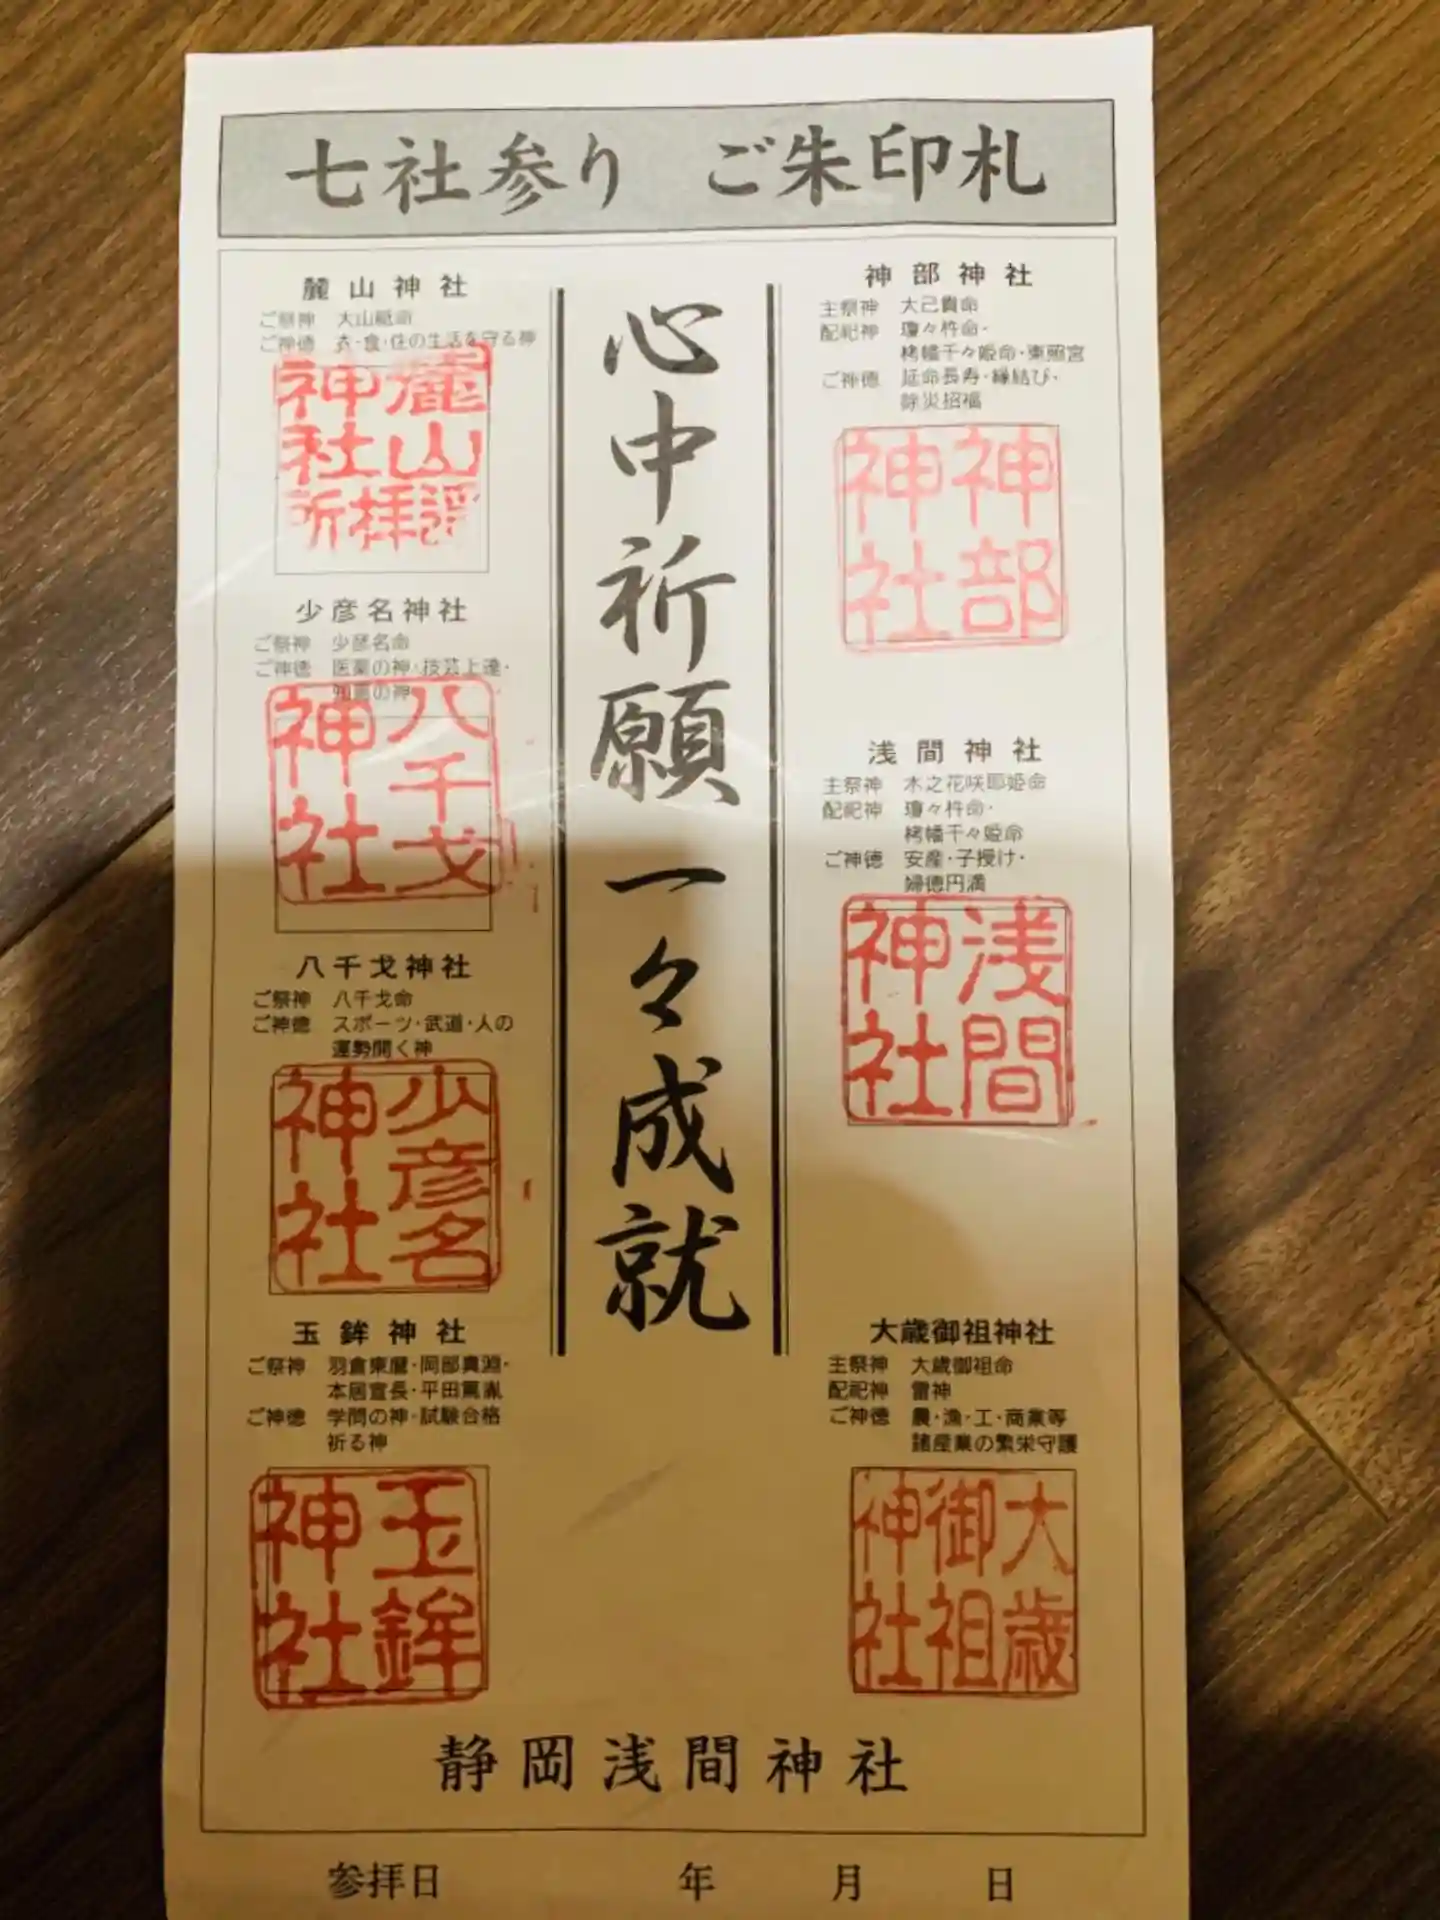 七社参り ご朱印札
神部神社
主祭神 大己貴命
配祀神 瓊々杵命・
栲幡千々姫命・東照宮
ご神徳 延命長寿・縁結び・
除災招福
神部
神社
浅間神社
主祭神 木之花咲耶姫命
配祀神 瓊々杵命・
栲幡千々姫命
ご神徳 安産・子授け・
婦徳円満
浅間
神社
大歳御祖神社
主祭神 大歳御祖命
配祀神 雷神
ご神徳 農・漁・工・商業等
諸産業の繁栄守護
大歳
御祖
神社
心中祈願一々成就
麓山神社
ご祭神 大山祗命
ご神徳 衣・食・住の生活を守る神
麓山
神社
遥拝所
少彦名神社
ご祭神 少彦名命
ご神徳 医薬の神・技芸上達・
知恵の神
八千戈
神社
八千戈神社
ご祭神 八千戈命
ご神徳 スポーツ・武道・人の
運勢開く神
少彦名
神社
玉鉾神社
ご祭神 羽倉東麿・岡部真淵・
本居宣長・平田篤胤
ご神徳 学問の神・試験合格
祈る神
玉鉾
神社
静岡浅間神社
参拝日 年 月 日